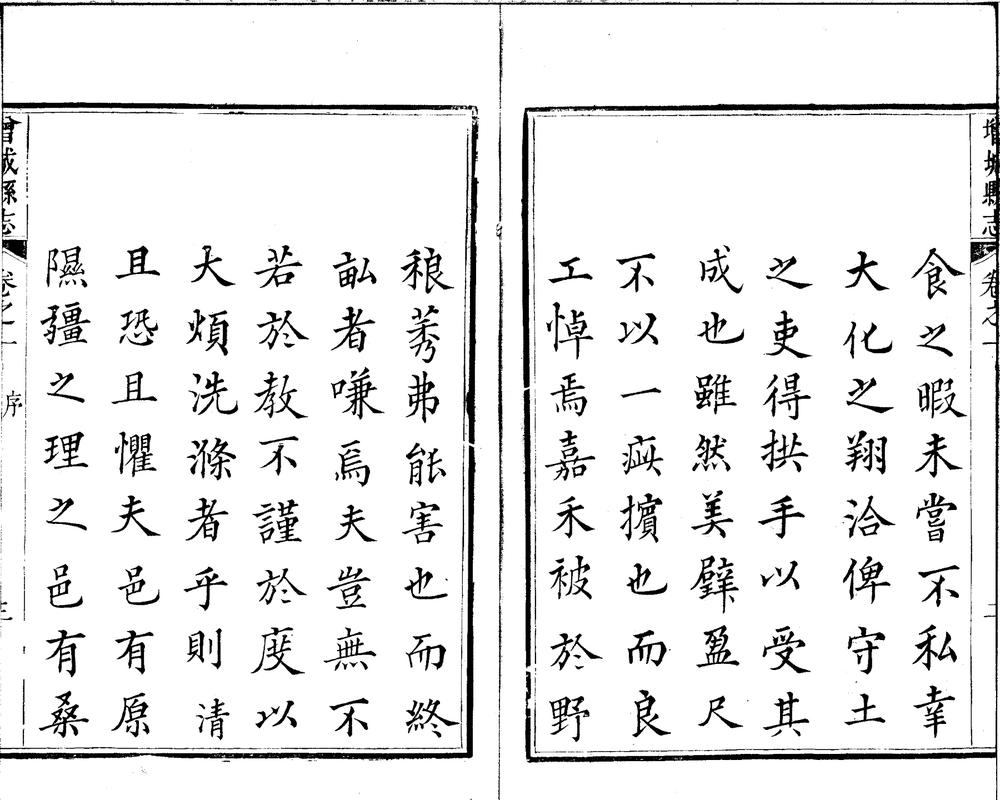 增城縣志
卷之一
二
食之暇未嘗不私幸
大化之翔洽俾守土
之吏得拱手以受其
成也雖然美璧盈尺
不以一疵擯也而良
工悼焉嘉禾被於野
稂莠弗能害也而終
畝者嗛焉夫豈無不
若於教不謹於度以
大煩洗滌者乎則清
且恐且懼夫邑有原
隰疆之理之邑有桑
增城縣志
卷之一
序
三